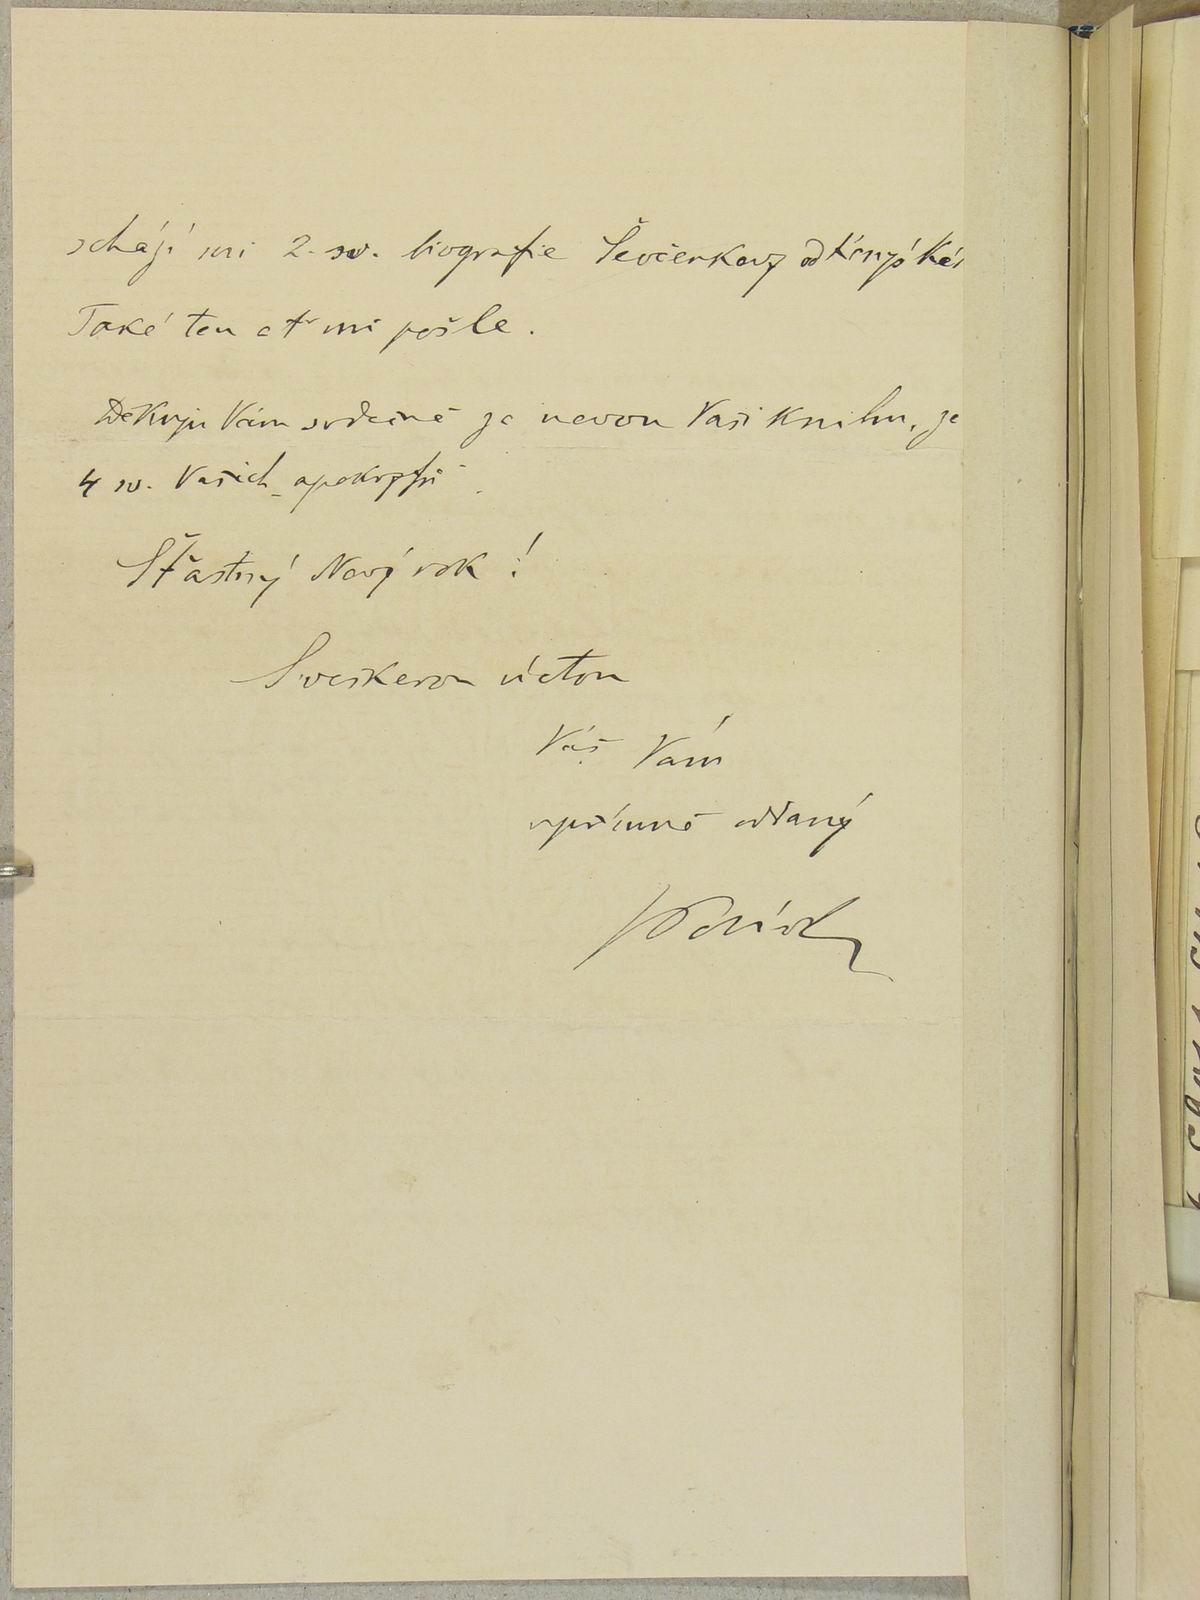 schází mi 2. sv. biografie Ševčenkovy od Konyské
Také ten ať mi pošle.
Děkuju Vám srdečně za novou Vaši knihu, za
4 sv. Vašich apokryfů.
Šťastný Nový rok!
S veškerou úctou
Váš Vám
upřímně oddaný